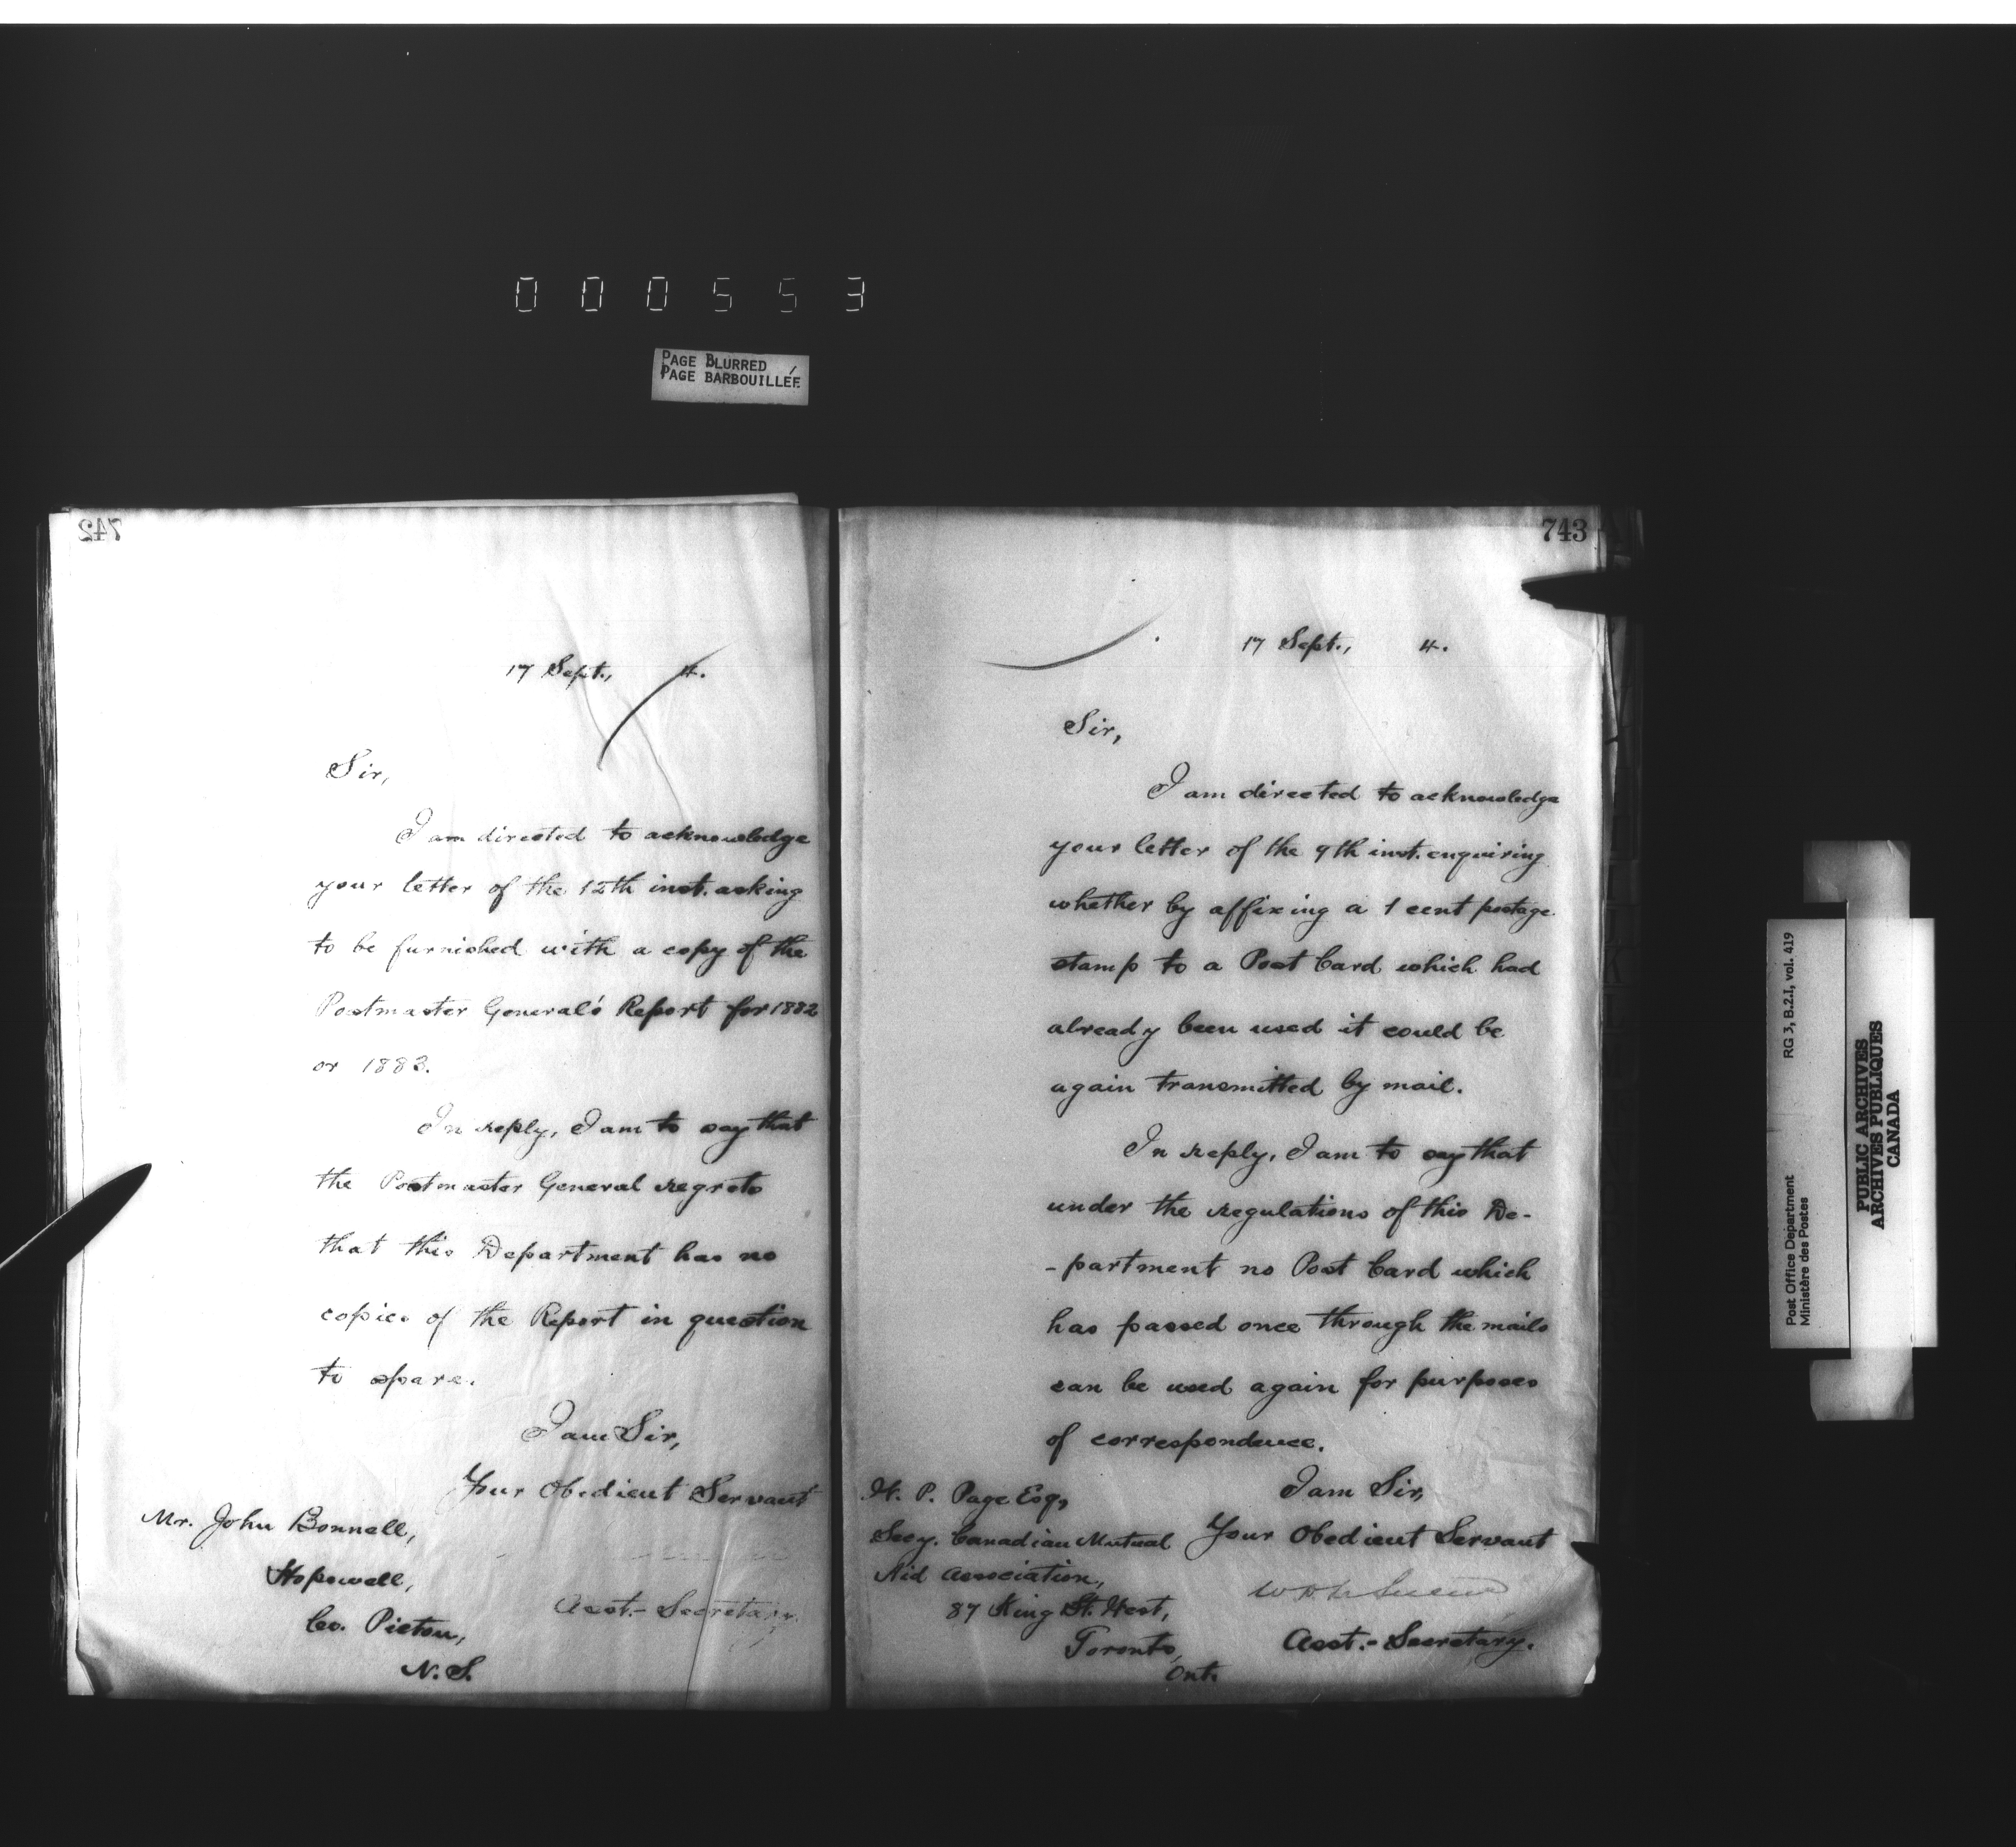 000553
PAGE BLURRED
PAGE BARBOUILLÉE
742
17 Sept., 4.
Sir,
I am directed to acknowledge
your letter of the 12th inst. asking
to be furnished with a copy of the
Postmaster General's Report for 1882
or 1883.
In reply, I am to say that
the Postmaster General regrets
that this Department has no
copies of the Report in question
to spare.
I am Sir,
Your Obedient Servant
Mr. John Bonnell,
Hopewell,
Co. Pictou,
N. S.
Asst.- Secretary.
743
17 Sept., 4.
Sir,
I am directed to acknowledge
your letter of the 9th inst. enquiring
whether by affixing a 1 cent postage
stamp to a Post Card which had
already been used it could be
again transmitted by mail.
In reply, I am to say that
under the regulations of this De-
-partment no Post Card which
has passed once through the mails
can be used again for purposes
of correspondence.
I am Sir,
Your Obedient Servant
Asst.- Secretary.
H. P. Page Esq,
Secy. Canadian Mutual
Aid Association,
87 King St. West,
Toronto,
Ont.
Post Office Department
Ministère des Postes
RG 3, B.2.I, vol. 419
PUBLIC ARCHIVES
ARCHIVES PUBLIQUES
CANADA